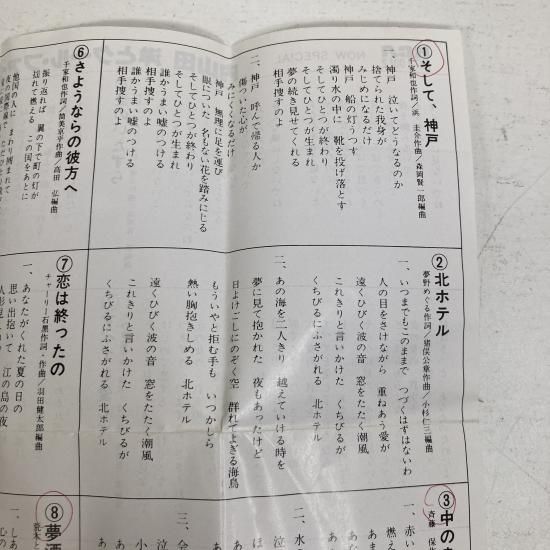 ①そして、神戸
千家和也作詞/浜 圭介作曲/森岡賢一郎編曲
一、神戸 泣いてどうなるのか
捨てられた我身が
みじめになるだけ
神戸 船の灯うつす
濁り水の中に 靴を投げ落とす
そしてひとつが終わり
そしてひとつが生まれ
夢の続き見せてくれる
相手捜すのよ
二、神戸 呼んで帰る人か
傷ついた心が
みにくくなるだけ
神戸 無理に足を運び
眼についた 名もない花を踏みにじる
そしてひとつが終わり
そしてひとつが生まれ
誰かうまい嘘のつける
相手捜すのよ
誰かうまい嘘のつける
相手捜すのよ
⑥さようならの彼方へ
千家和也作詞/筒美京平作曲/高田 弘編曲
振り返れば 翼の下で町の灯が
揺れて燃える この国をあとに
他国の人に まわり囲まれて
②北ホテル
夢野めぐる作詞/猪俣公章作曲/小杉仁三編曲
一、いつまでもこのままで つづくはずはないわ
人の目をさけながら 重ねあう愛が
遠くひびく波の音 窓をたたく潮風
これきりと言いかけた くちびるが
くちびるにふさがれる 北ホテル
二、あの海を二人きり 越えていける時を
夢に見て抱かれた 夜もあったけど
日よけごしにのぞく空 群れてよぎる海鳥
もういやと拒む手も いつかしら
熱い胸抱きしめる 北ホテル
遠くひびく波の音 窓をたたく潮風
これきりと言いかけた くちびるが
くちびるにふさがれる 北ホテル
⑦恋は終ったの
チャーリー石黒作詞・作曲/羽田健太郎編曲
一、あなたがくれた夏の日の
思い出抱いて 江の島の夜
③中の
斉藤 保
一、赤い
燃え
あま
あま
二、水の
ほ
泣
あ
あ
三、
泣
小
あ
あ
⑧夢
荒木と
一、しあ
心の